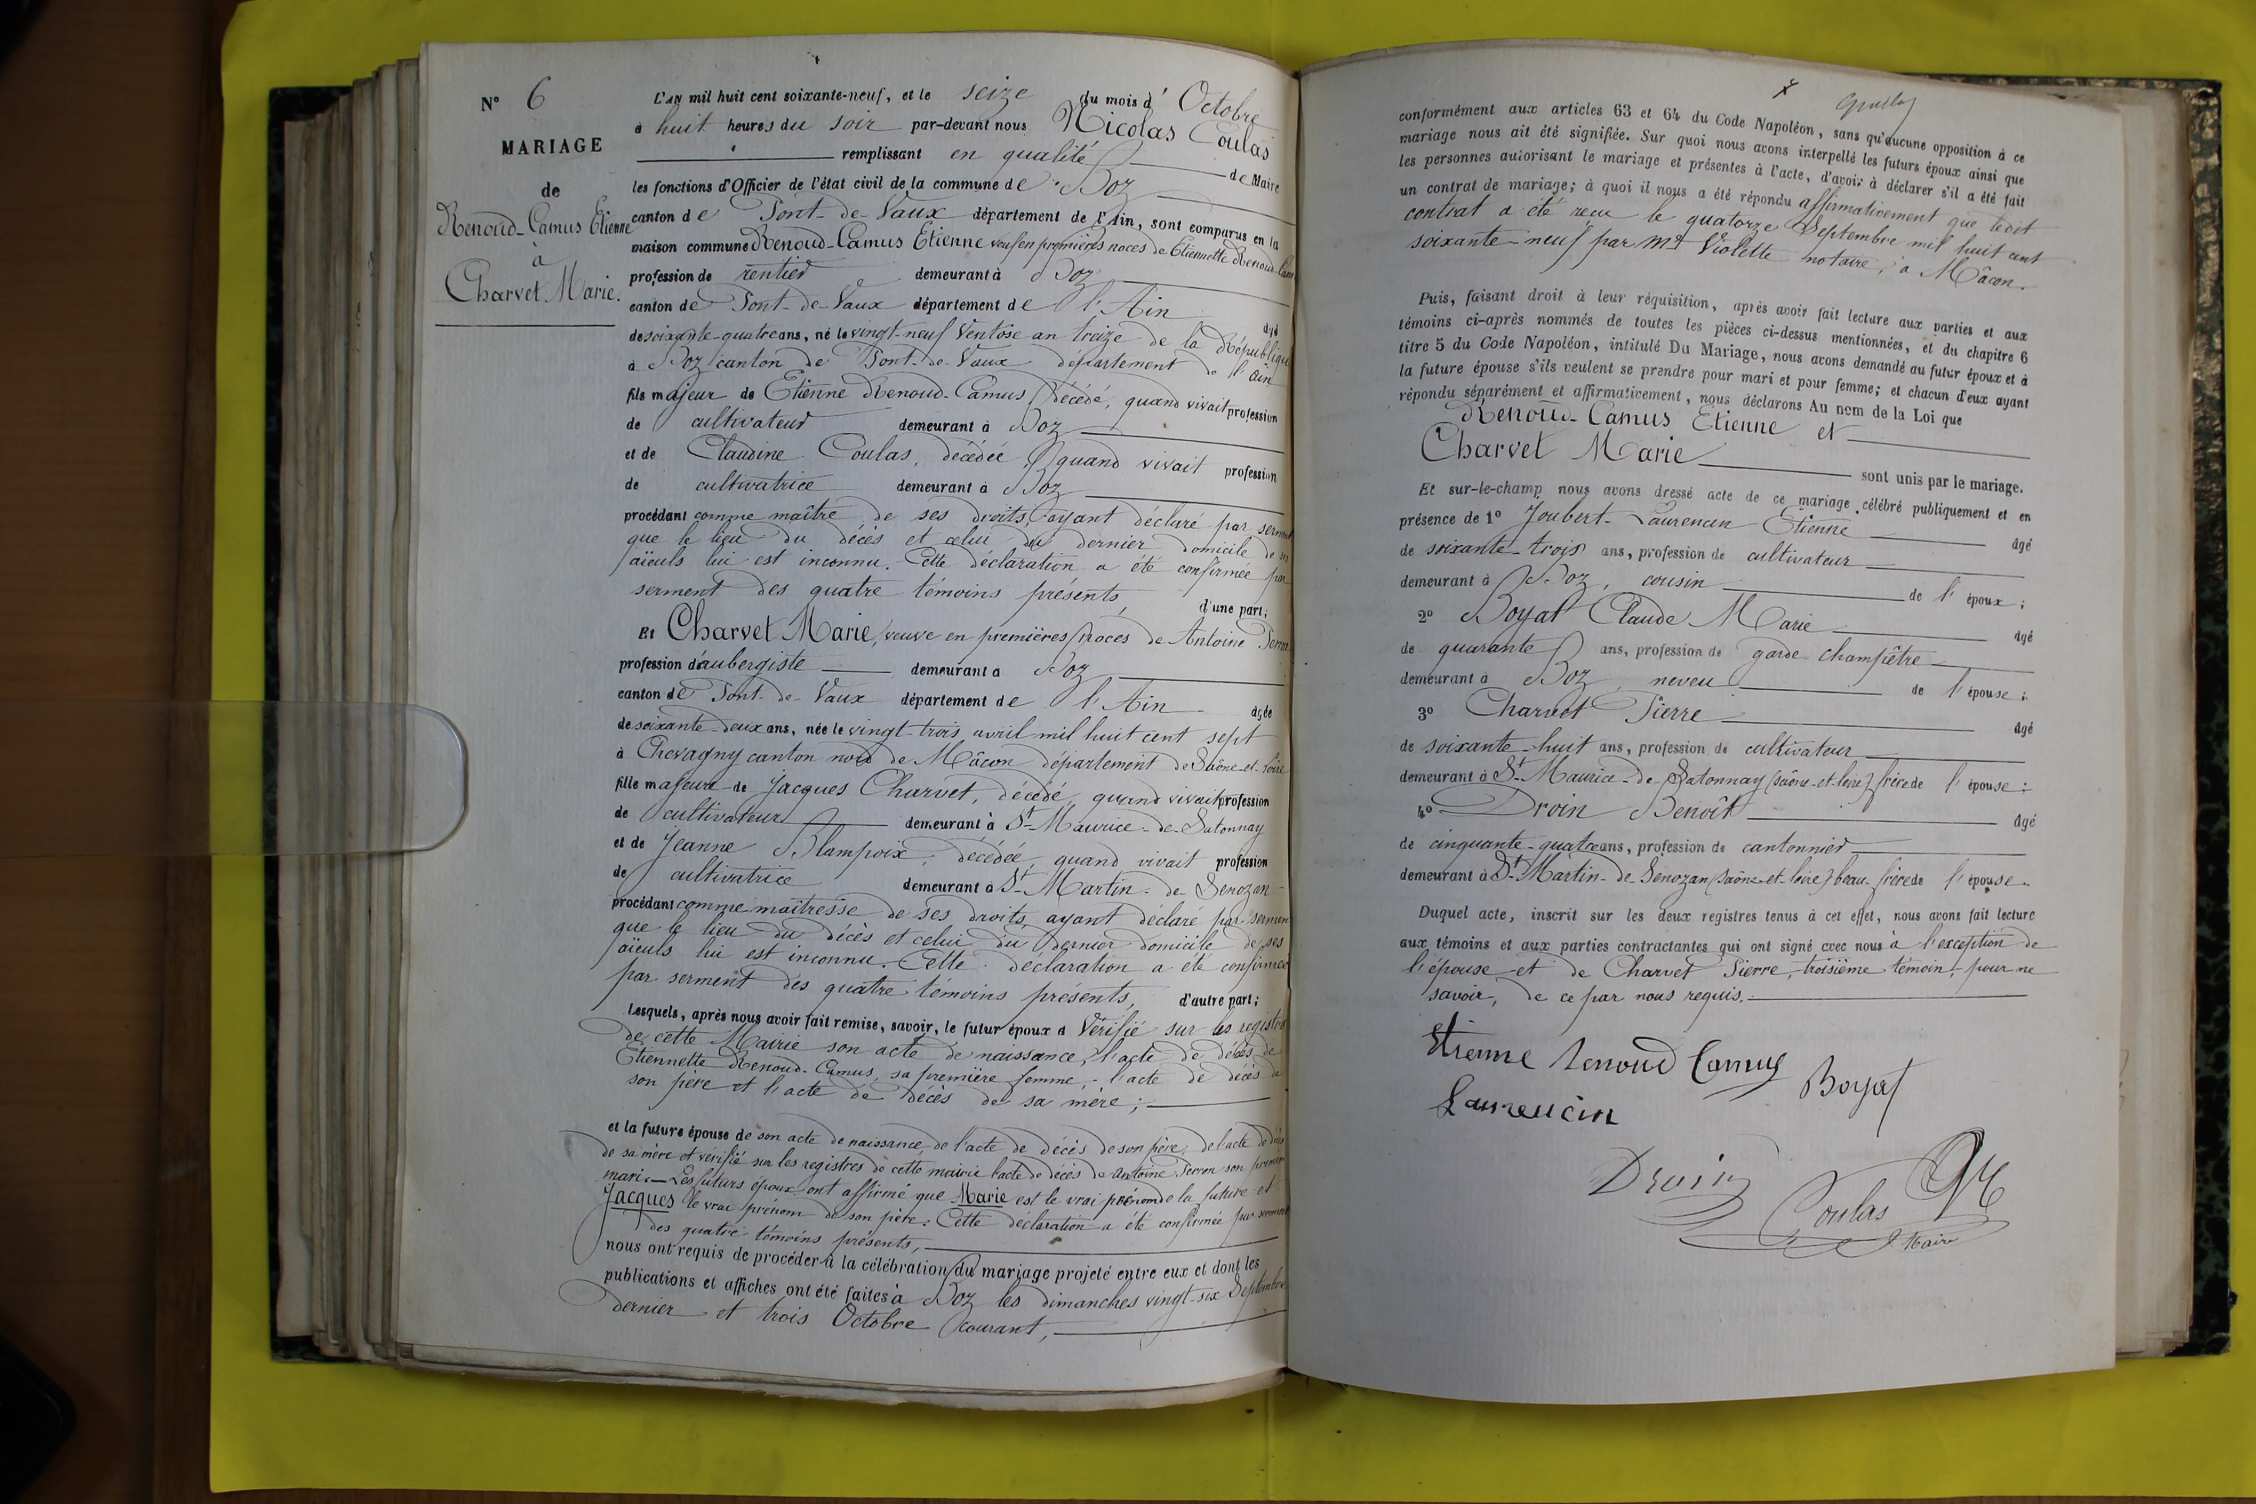 N° 6
MARIAGE
de
Renoud-Camus Etienne
à
Charvet Marie.
L'AN mil huit cent soixante-neuf, et le seize du mois d' Octobre
à huit heures du soir par-devant nous Nicolas Coulas
remplissant en qualité de Maire
les fonctions d'Officier de l'état civil de la commune de Boz
canton de Pont-de-Vaux département de l'Ain, sont comparus en la
maison commune Renoud-Camus Etienne veuf en premières noces de Etiennette Renoud-Camus
profession de rentier demeurant à Boz
canton de Pont-de-Vaux département de l'Ain âgé
de soixante-quatre ans, né le vingt-neuf Ventôse an treize de la République
à Boz canton de Pont-de-Vaux département de l'ain
fils majeur de Etienne Renoud-Camus, décédé, quand vivait profession
de cultivateur demeurant à Boz
et de Claudine Coulas, décédée, quand vivait profession
de cultivatrice demeurant à Boz
procédant comme maître de ses droits, ayant déclaré par serment
que le lieu du décès et celui du dernier domicile de ses
aïeuls lui est inconnu. Cette déclaration a été confirmée par
serment des quatre témoins présents, d'une part;
Et Charvet Marie, veuve en premières noces de Antoine
profession d'aubergiste demeurant à Boz
canton de Pont-de-Vaux département de l'Ain âgée
de soixante-deux ans, née le vingt-trois avril mil huit cent sept
à Chevagny canton nord de Mâcon département de Saône-et-Loire
fille majeure de Jacques Charvet, décédé, quand vivait profession
de cultivateur demeurant à St-Maurice-de-Satonnay
et de Jeanne Blampoix, décédée, quand vivait profession
de cultivatrice demeurant à St-Martin-de-Senozan
procédant comme maîtresse de ses droits, ayant déclaré par serment
que le lieu du décès et celui du dernier domicile de ses
aïeuls lui est inconnu. Cette déclaration a été confirmée
par serment des quatre témoins présents, d'autre part;
Lesquels, après nous avoir fait remise, savoir, le futur époux a vérifié sur les registres
de cette Mairie son acte de naissance, l'acte de décès de
Etiennette Renoud-Camus, sa première femme, l'acte de décès de
son père et l'acte de décès de sa mère;
et la future épouse de son acte de naissance, de l'acte de décès de son père, de l'acte de décès
de sa mère et vérifié sur les registres de cette mairie l'acte de décès de Antoine son premier
mari.— Les futurs époux ont affirmé que Marie est le vrai prénom de la future et
Jacques le vrai prénom de son père. Cette déclaration a été confirmée par serment
des quatre témoins présents,
nous ont requis de procéder à la célébration du mariage projeté entre eux et dont les
publications et affiches ont été faites à Boz les dimanches vingt-six Septembre
dernier et trois Octobre courant,
conformément aux articles 63 et 64 du Code Napoléon, sans qu'aucune opposition à ce
mariage nous ait été signifiée. Sur quoi nous avons interpellé les futurs époux ainsi que
les personnes autorisant le mariage et présentes à l'acte, d'avoir à déclarer s'il a été fait
un contrat de mariage; à quoi il nous a été répondu affirmativement que ledit
contrat a été reçu le quatorze Septembre mil huit cent
soixante-neuf par Me Violette notaire, à Mâcon.
Puis, faisant droit à leur réquisition, après avoir fait lecture aux parties et aux
témoins ci-après nommés de toutes les pièces ci-dessus mentionnées, et du chapitre 6
titre 5 du Code Napoléon, intitulé Du Mariage, nous avons demandé au futur époux et à
la future épouse s'ils veulent se prendre pour mari et pour femme; et chacun d'eux ayant
répondu séparément et affirmativement, nous déclarons Au nom de la Loi que
Renoud-Camus Etienne et
Charvet Marie sont unis par le mariage.
Et sur-le-champ nous avons dressé acte de ce mariage célébré publiquement et en
présence de 1° Joubert-Laurencin Etienne âgé
de soixante-trois ans, profession de cultivateur
demeurant à Boz, cousin de l'époux;
2° Boyat Claude Marie âgé
de quarante ans, profession de garde-champêtre
demeurant à Boz, neveu de l'épouse;
3° Charvet Pierre âgé
de soixante-huit ans, profession de cultivateur
demeurant à St-Maurice-de-Satonnay (saône-et-loire) frère de l'épouse;
4° Droin Benoît âgé
de cinquante-quatre ans, profession de cantonnier
demeurant à St-Martin-de-Senozan (saône-et-loire) beau-frère de l'épouse.
Duquel acte, inscrit sur les deux registres tenus à cet effet, nous avons fait lecture
aux témoins et aux parties contractantes qui ont signé avec nous à l'exception de
l'épouse et de Charvet Pierre, troisième témoin, pour ne
savoir, de ce par nous requis.
Etienne Renoud Camus
Boyat
Laurencin
Droin
Coulas
Maire